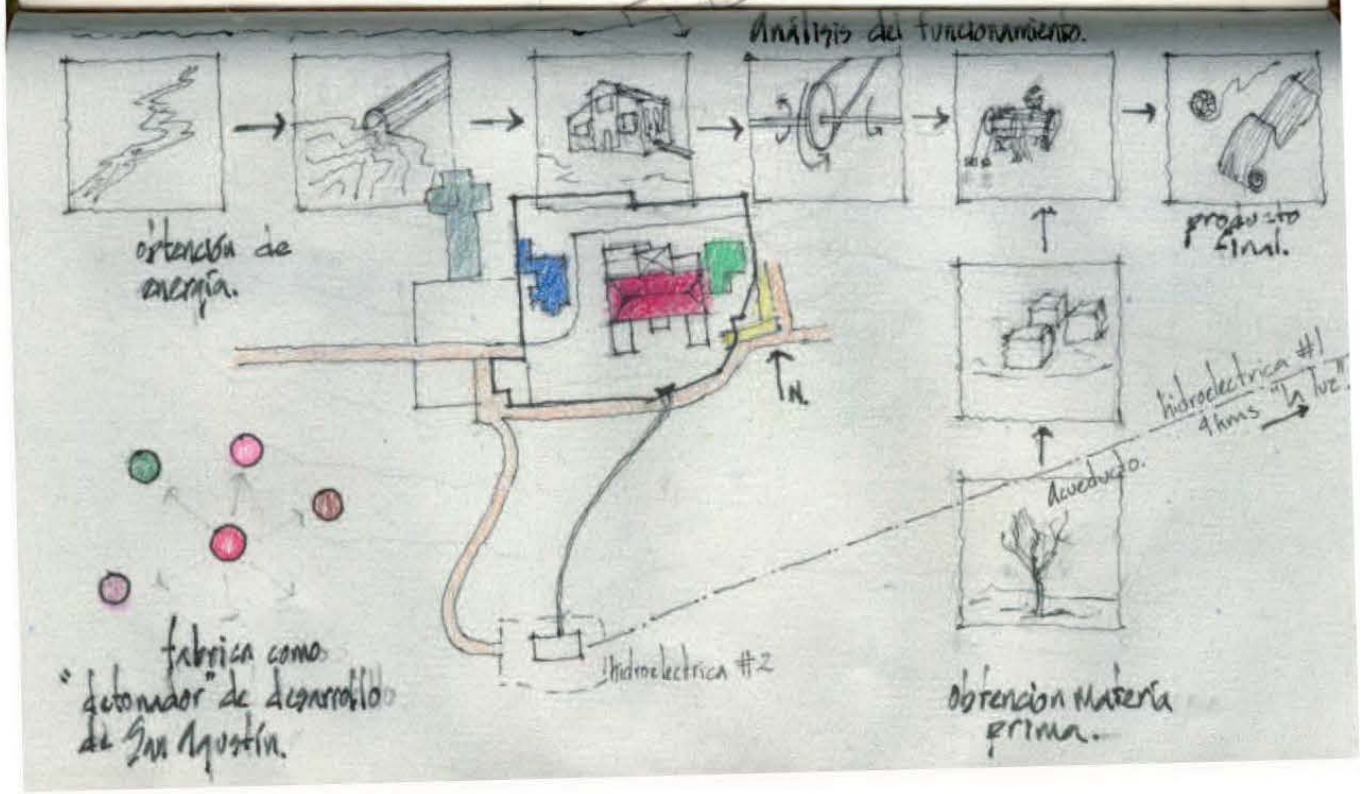 Análisis del funcionamiento.
obtención de
energía.
producto
final.
N.
hidroelectrica #1
4 kms "la luz".
Acueducto.
hidroelectrica #2
fabrica como
"detonador" de desarrollo
de San Agustín.
obtencion Matería
prima.